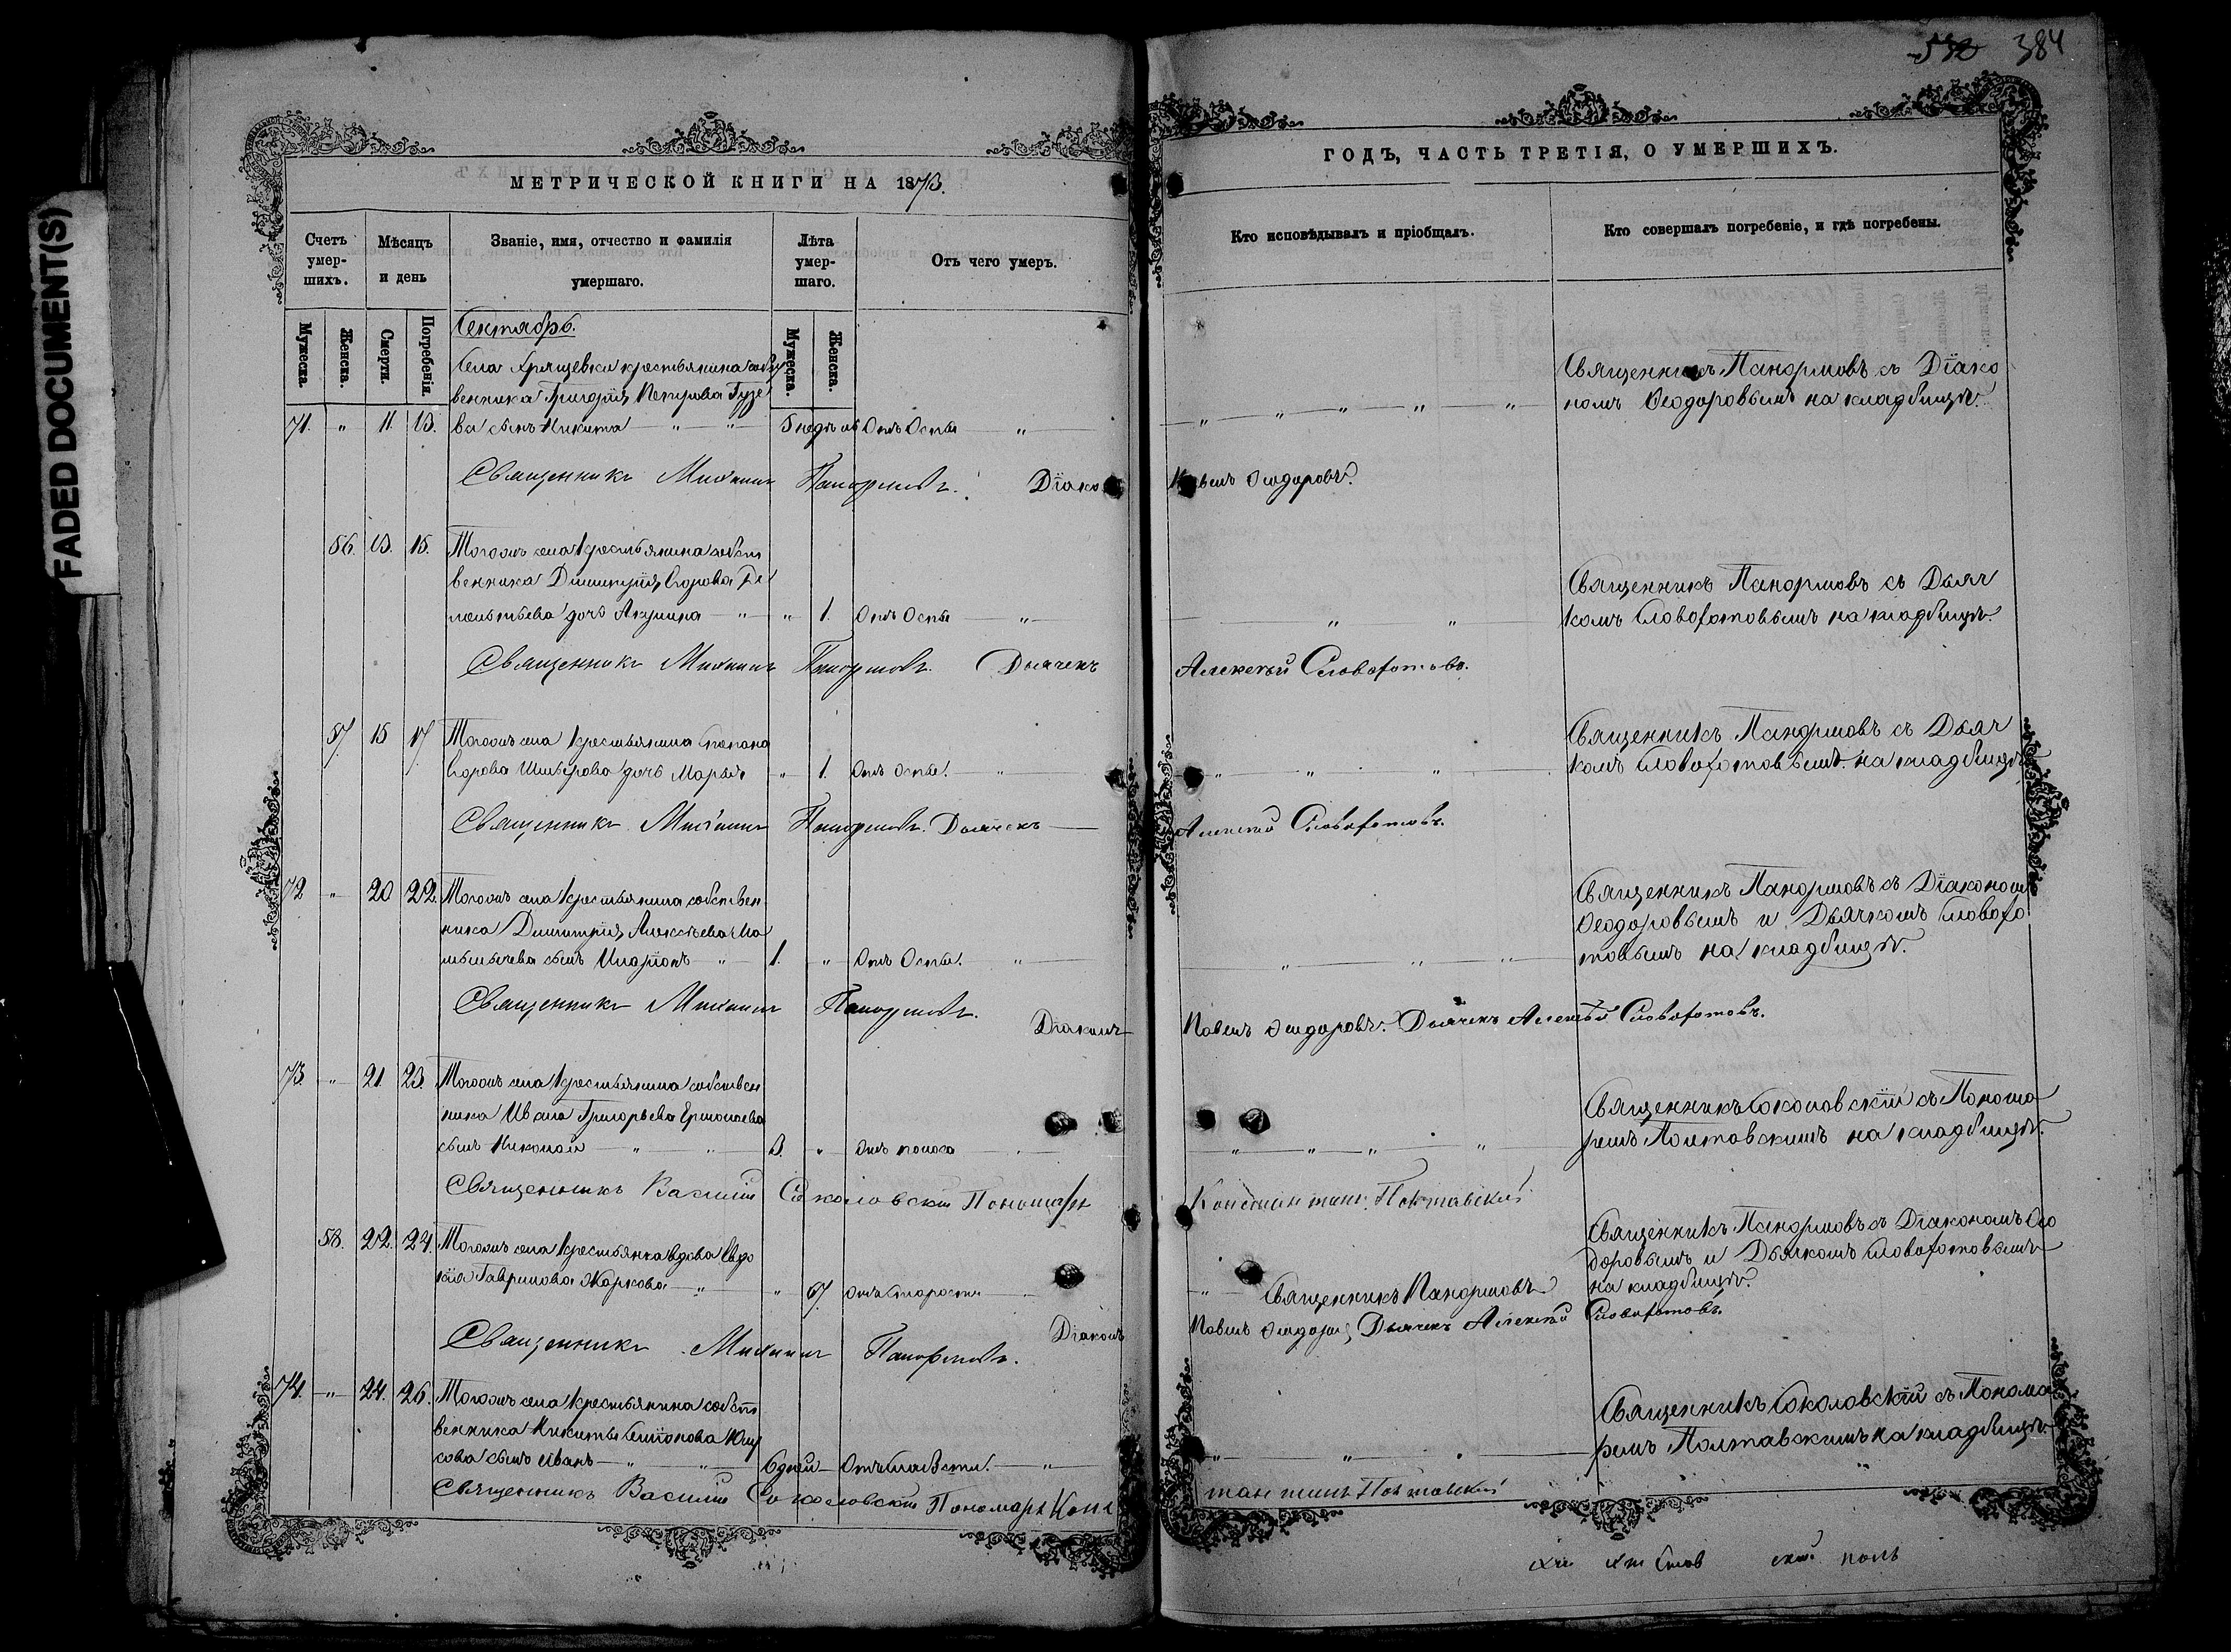 FADED DOCUMENT(S)
532 384
МЕТРИЧЕСКОЙ КНИГИ НА 1873.
ГОДЪ, ЧАСТЬ ТРЕТІЯ, О УМЕРШИХЪ.
Счетъ умер-шихъ.
Мѣсяцъ и день
Званіе, имя, отчество и фамилія умершаго.
Лѣта умер-шаго.
Отъ чего умеръ.
Кто исповѣдывалъ и пріобщалъ.
Кто совершалъ погребеніе, и гдѣ погребены.
Мужеска. Женска. Смерти. Погребенія. Мужеска. Женска.
Сентябрь.
Села Хрящевки крестьянина собст
венника Григорія Петрова Гузе
71. " 11. 13. ва сынъ Никита " " 5 недѣль Отъ Оспы "
Священникъ Панормовъ съ Діако
номъ Ѳеодоровымъ на кладбищѣ.
Священникъ Михаилъ Панормовъ. Діаконъ
Павелъ Ѳеодоровъ.
56. 13. 15. Тогожъ села крестьянина собст
венника Димитрія Егорова
дочь Акулина " " 1. Отъ Оспы "
Священникъ Панормовъ съ Дьяч
комъ Словохотовымъ на кладбищѣ.
Священникъ Михаилъ Панормовъ. Дьячекъ
Алексѣй Словохотовъ.
57. 15 17. Тогожъ села крестьянина Степана
Егорова дочь Марья " 1. Отъ Оспы. "
Священникъ Панормовъ съ Дьяч
комъ Словохотовымъ на кладбищѣ
Священникъ Михаилъ Панормовъ. Дьячекъ
Алексѣй Словохотовъ.
72 " 20 22. Тогожъ села крестьянина собствен
ника Димитрія Алексѣева Ма
сынъ Иларіонъ " 1. " Отъ Оспы. "
Священникъ Панормовъ съ Діакономъ
Ѳеодоровымъ и Дьячкомъ Словохо
товымъ на кладбищѣ.
Священникъ Михаилъ Панормовъ. Діаконъ
Павелъ Ѳеодоровъ. Дьячекъ Алексѣй Словохотовъ.
73. " 21. 23. Тогожъ села крестьянина собствен
ника Ивана Григорьева Ермолаева
сынъ Николай " " 3. " Отъ поноса
Священникъ Соколовскій съ Понома
ремъ Полтавскимъ на кладбищѣ.
Священникъ Василій Соколовскій Пономарь
Константинъ Полтавскій
58. 22. 24. Тогожъ села крестьянка вдова Евдо
кія Гаврилова Жаркова " " 67. Отъ старости
Священникъ Панормовъ
Священникъ Панормовъ съ Діакономъ Ѳео
доровымъ и Дьячкомъ Словохотовымъ
на кладбищѣ.
Священникъ Михаилъ Панормовъ. Діаконъ
Павелъ Ѳеодоровъ Дьячекъ Алексѣй Словохотовъ.
74. " 24. 26. Тогожъ села крестьянина собст
венника Никиты Симіонова
сова сынъ Иванъ " " 6 дней Отъ слабости. "
Священникъ Соколовскій съ Понома
ремъ Полтавскимъ на кладбищѣ.
Священникъ Василій Соколовскій Пономарь Конс
тантинъ Полтавскій